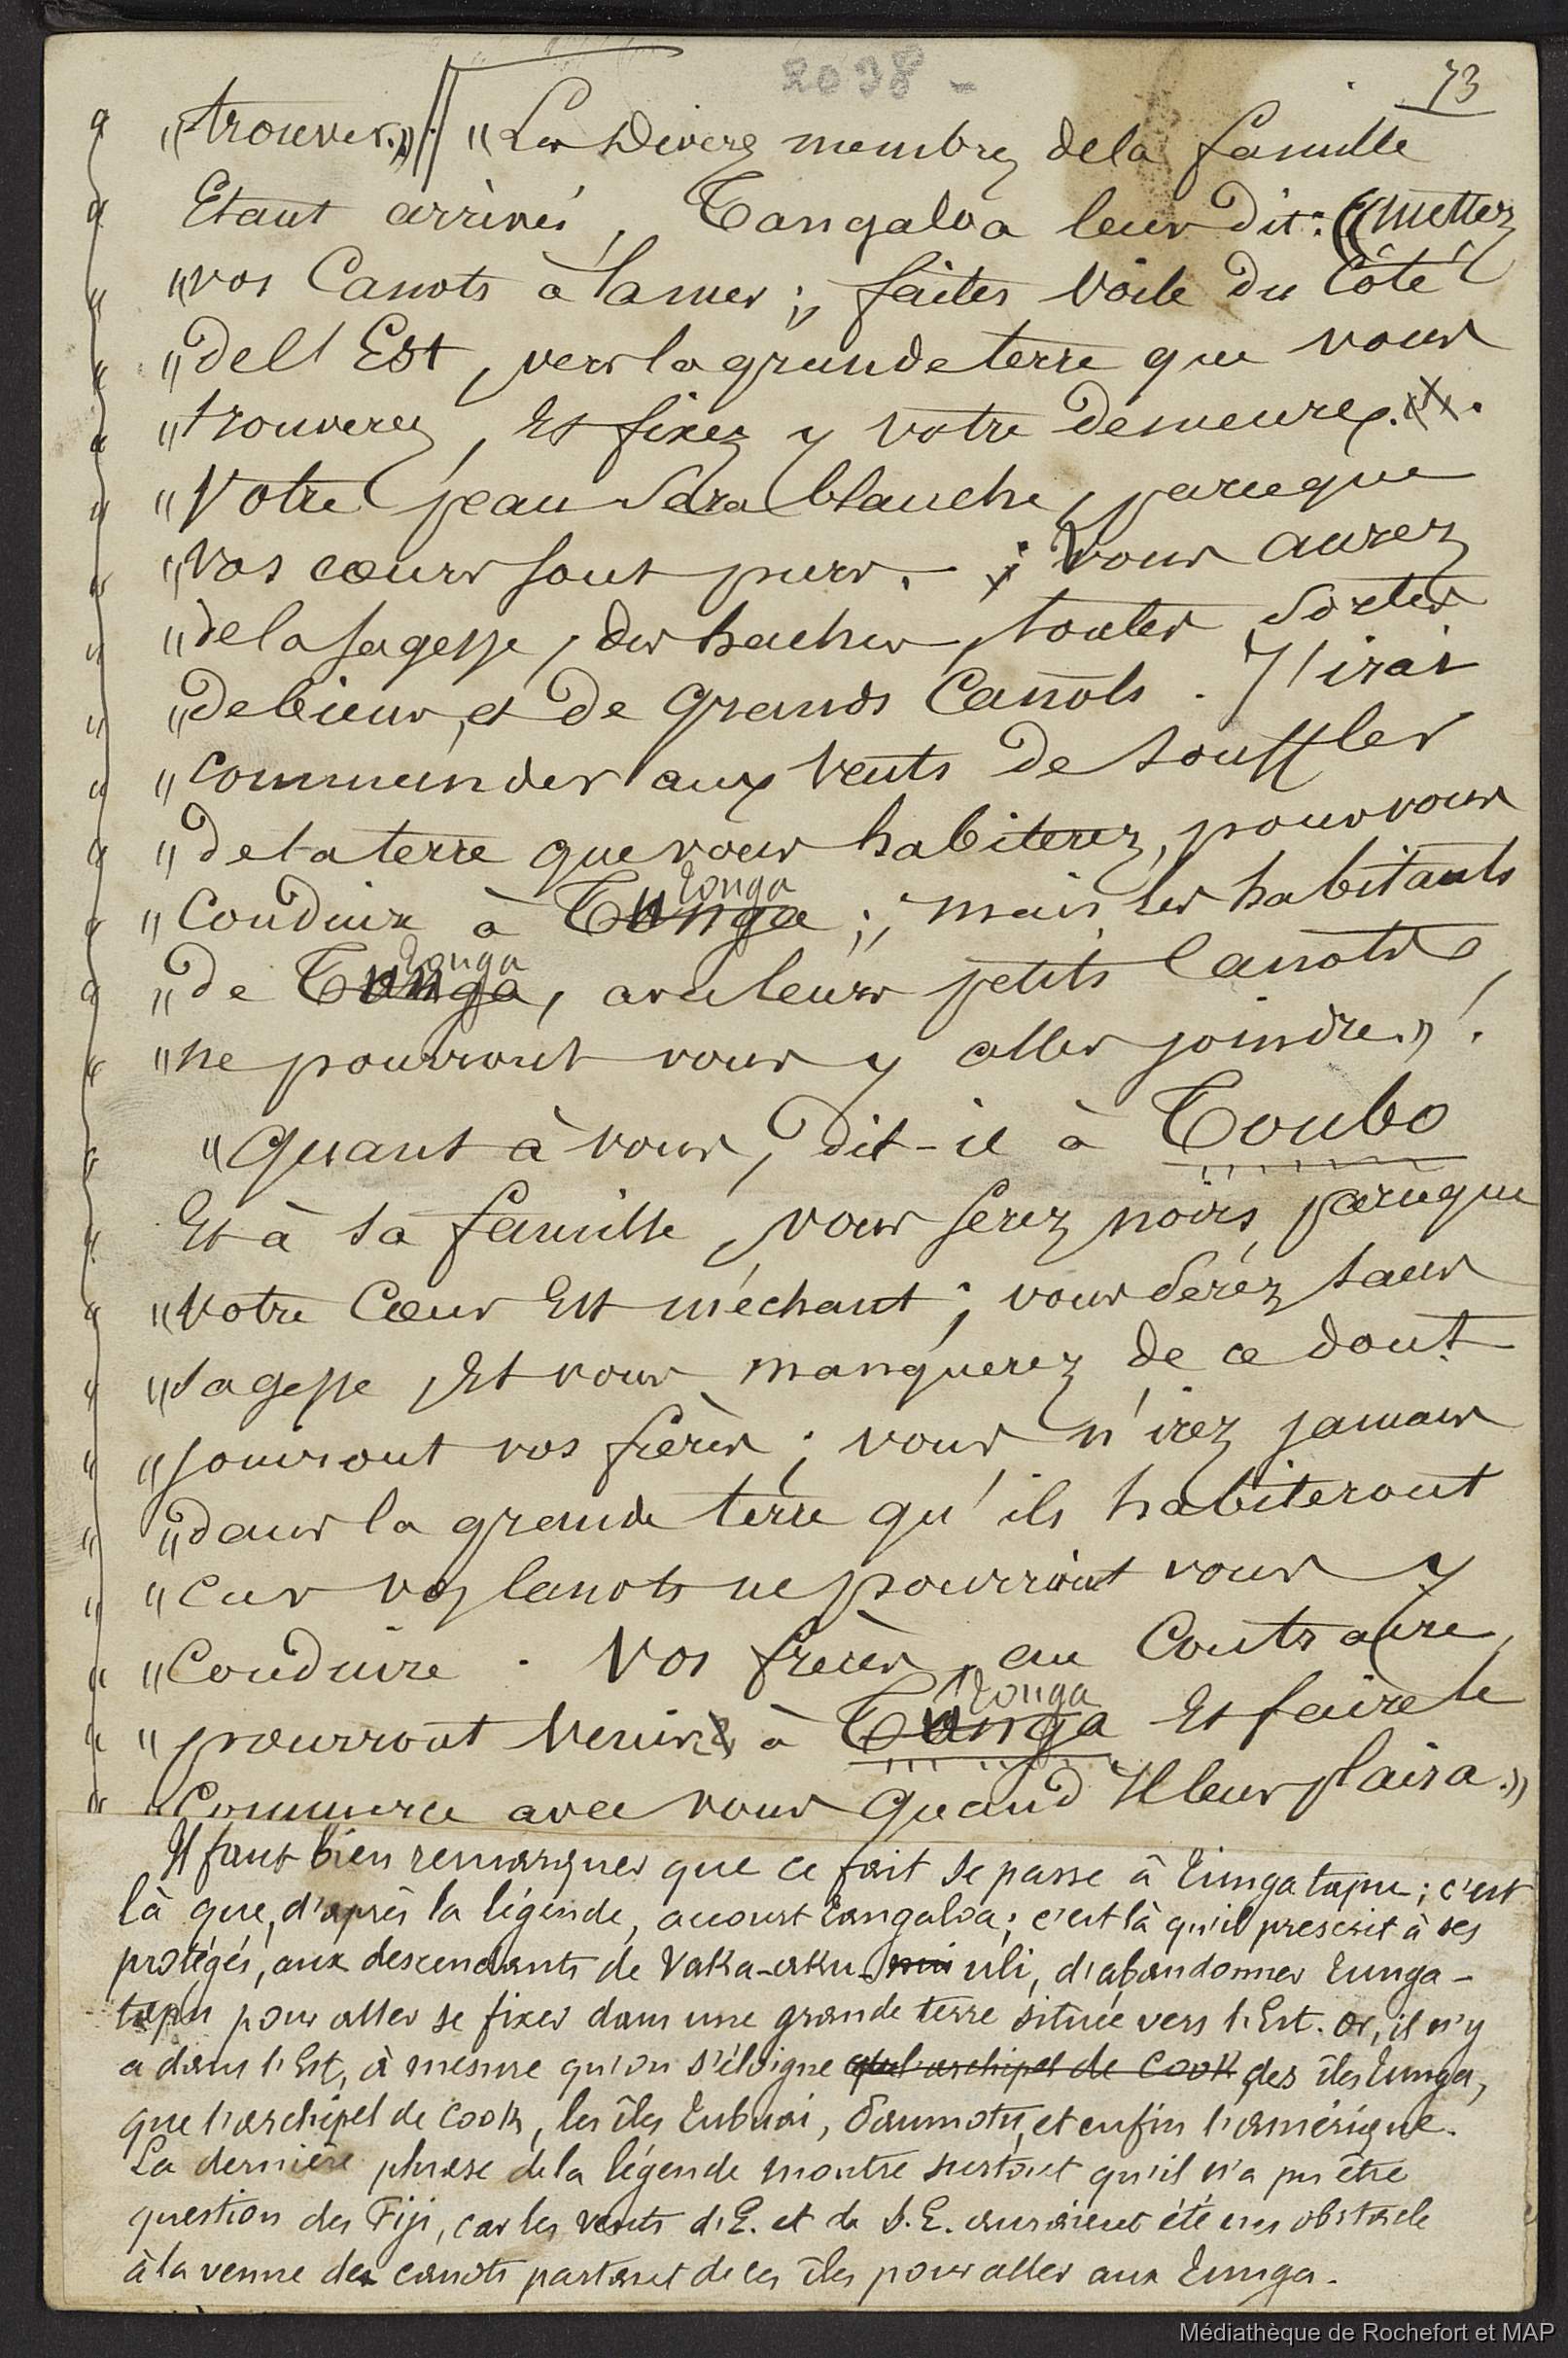 2038 -
73
"trouver.»// "Les Divers membres dela famille
Etant arrivés, Tangaloa leur dit: «mettez
"vos Canots à la mer; faites voile du Côté
"del'Est, vers la grande terre que vous
"trouverez, et fixez y votre demeure.
"Votre peau sera blanche, parceque
"vos cœurs sont purs. ; vous aurez
"de la sagesse, des haches, toutes sortes
"de biens, et de grands Canots. J'irai
"commander aux vents de souffler
"de la terre que vous habiterez, pour vous
"Conduire à Tunga Tonga ; mais les habitants
"de Tunga Tonga, avec leurs petits Canots,
"ne pourront vous y aller joindre.»
"Quant à vous, dit-il à Toubo
Et à sa famille, vous serez noirs, parceque
"votre Cœur Est méchant ; vous serez sans
"sagesse, Et vous manquerez de ce dont
"jouiront vos frères ; vous n'irez jamais
"dans la grande terre qu'ils habiteront
"car vos Canots ne pourront vous y
"Conduire. Vos frères, au Contraire,
"pourront venir à Tunga Tonga Et faire le
"Commerce avec vous Quand Il leur plaira.»
Il faut bien remarquer que ce fait se passe à Tungatapu ; c'est
là que, d'après la légende, accourt Tangaloa ; c'est là qu'il prescrit à ses
protégés, aux descendants de Vaka-aku-uli, d'abandonner Tunga-
tapu pour aller se fixer dans une grande terre située vers l'Est. Or, il n'y
a dans l'Est, à mesure qu'on s'éloigne que l'archipel de Cook des îles Tunga,
que l'archipel de Cook, les îles Tubuai, Paumotu, et enfin l'amérique.
La dernière phrase de la légende montre surtout qu'il n'a pu être
question des Fiji, car les vents d'E. et de S.E. auraient été un obstacle
à la venue des canots partant de ces îles pour aller aux Tunga.
Médiathèque de Rochefort et MAP